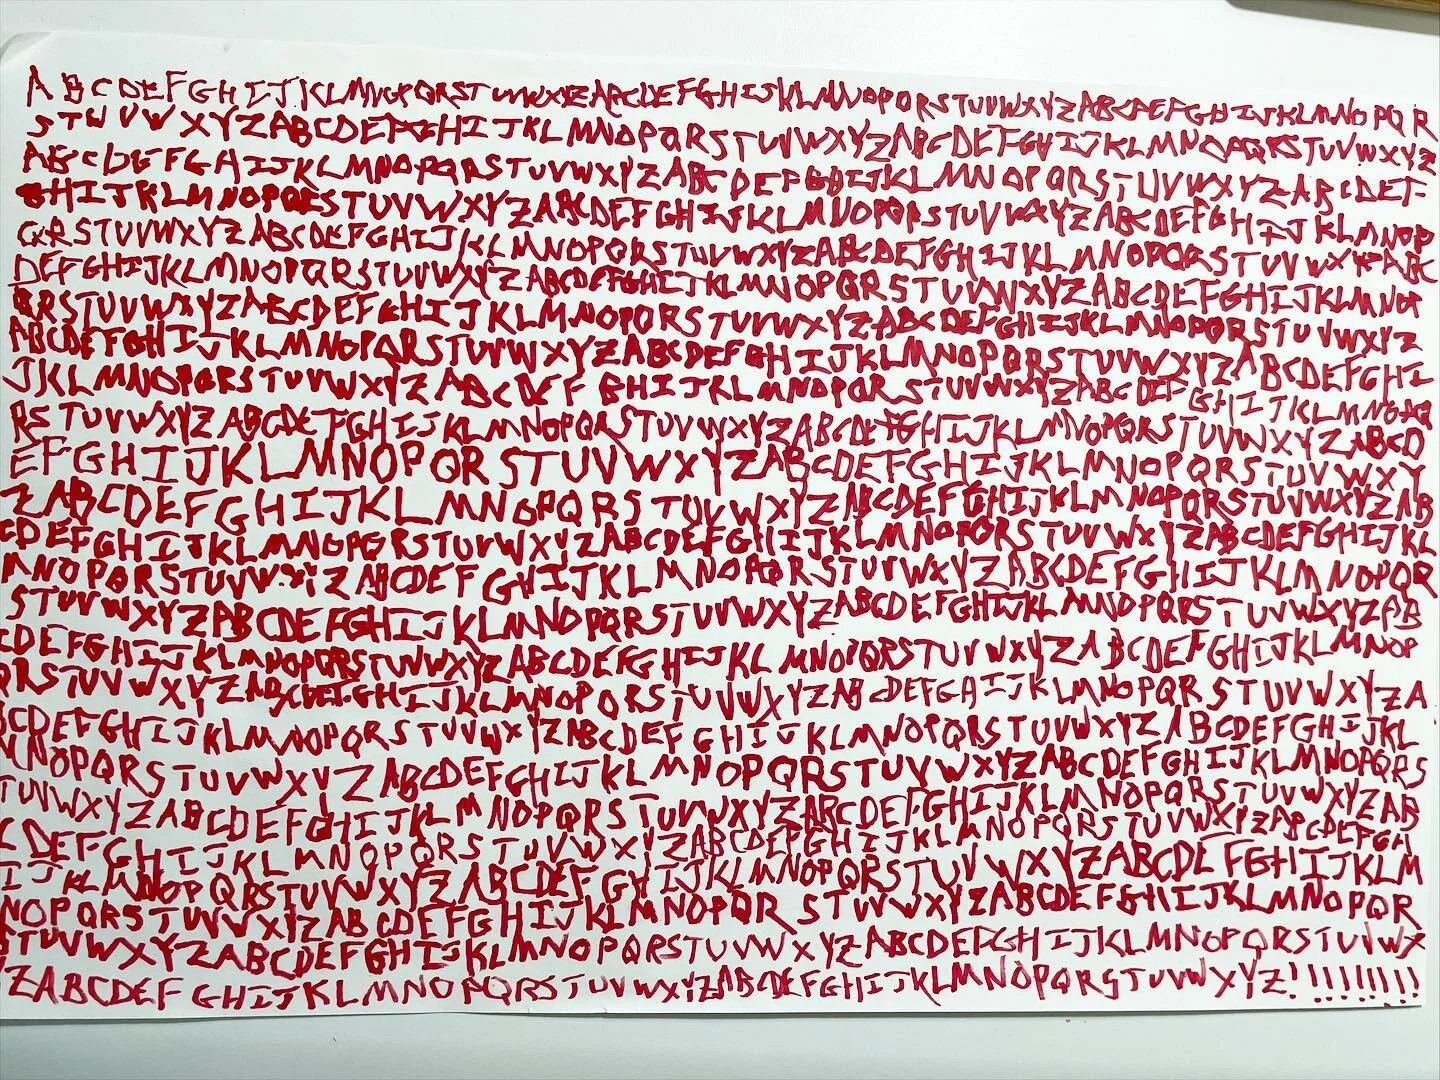 A B C D E F G H I J K L M N O P Q R S T U V W X Y Z A B C D E F G H I J K L M N O P Q R S T U V W X Y Z A B C D E F G H I J K L M N O P Q R
S T U V W X Y Z A B C D E F G H I J K L M N O P Q R S T U V W X Y Z A B C D E F G H I J K L M N O P Q R S T U V W X Y Z
A B C D E F G H I J K L M N O P Q R S T U V W X Y Z A B C D E F G H I J K L M N O P Q R S T U V W X Y Z A B C D E F
G H I J K L M N O P Q R S T U V W X Y Z A B C D E F G H I J K L M N O P Q R S T U V W X Y Z A B C D E F G H I J K L M N O P
Q R S T U V W X Y Z A B C D E F G H I J K L M N O P Q R S T U V W X Y Z A B C D E F G H I J K L M N O P Q R S T U V W X Y Z A B C
D E F G H I J K L M N O P Q R S T U V W X Y Z A B C D E F G H I J K L M N O P Q R S T U V W X Y Z A B C D E F G H I J K L M N O P
Q R S T U V W X Y Z A B C D E F G H I J K L M N O P Q R S T U V W X Y Z A B C D E F G H I J K L M N O P Q R S T U V W X Y Z
A B C D E F G H I J K L M N O P Q R S T U V W X Y Z A B C D E F G H I J K L M N O P Q R S T U V W X Y Z A B C D E F G H I
J K L M N O P Q R S T U V W X Y Z A B C D E F G H I J K L M N O P Q R S T U V W X Y Z A B C D E F G H I J K L M N O P Q
R S T U V W X Y Z A B C D E F G H I J K L M N O P Q R S T U V W X Y Z A B C D E F G H I J K L M N O P Q R S T U V W X Y Z A B C D
E F G H I J K L M N O P Q R S T U V W X Y Z A B C D E F G H I J K L M N O P Q R S T U V W X Y
Z A B C D E F G H I J K L M N O P Q R S T U V W X Y Z A B C D E F G H I J K L M N O P Q R S T U V W X Y Z A B
C D E F G H I J K L M N O P Q R S T U V W X Y Z A B C D E F G H I J K L M N O P Q R S T U V W X Y Z A B C D E F G H I J K L
M N O P Q R S T U V W X Y Z A B C D E F G H I J K L M N O P Q R S T U V W X Y Z A B C D E F G H I J K L M N O P Q R
S T U V W X Y Z A B C D E F G H I J K L M N O P Q R S T U V W X Y Z A B C D E F G H I J K L M N O P Q R S T U V W X Y Z A B
C D E F G H I J K L M N O P Q R S T U V W X Y Z A B C D E F G H I J K L M N O P Q R S T U V W X Y Z A B C D E F G H I J K L M N O P
Q R S T U V W X Y Z A B C D E F G H I J K L M N O P Q R S T U V W X Y Z A B C D E F G H I J K L M N O P Q R S T U V W X Y Z A
B C D E F G H I J K L M N O P Q R S T U V W X Y Z A B C D E F G H I J K L M N O P Q R S T U V W X Y Z A B C D E F G H I J K L
M N O P Q R S T U V W X Y Z A B C D E F G H I J K L M N O P Q R S T U V W X Y Z A B C D E F G H I J K L M N O P Q R S
T U V W X Y Z A B C D E F G H I J K L M N O P Q R S T U V W X Y Z A B C D E F G H I J K L M N O P Q R S T U V W X Y Z A B
C D E F G H I J K L M N O P Q R S T U V W X Y Z A B C D E F G H I J K L M N O P Q R S T U V W X Y Z A B C D E F G H
I J K L M N O P Q R S T U V W X Y Z A B C D E F G H I J K L M N O P Q R S T U V W X Y Z A B C D E F G H I J K L M
N O P Q R S T U V W X Y Z A B C D E F G H I J K L M N O P Q R S T U V W X Y Z A B C D E F G H I J K L M N O P Q R
S T U V W X Y Z A B C D E F G H I J K L M N O P Q R S T U V W X Y Z A B C D E F G H I J K L M N O P Q R S T U V W X
Y Z A B C D E F G H I J K L M N O P Q R S T U V W X Y Z A B C D E F G H I J K L M N O P Q R S T U V W X Y Z ! ! ! ! ! ! ! !